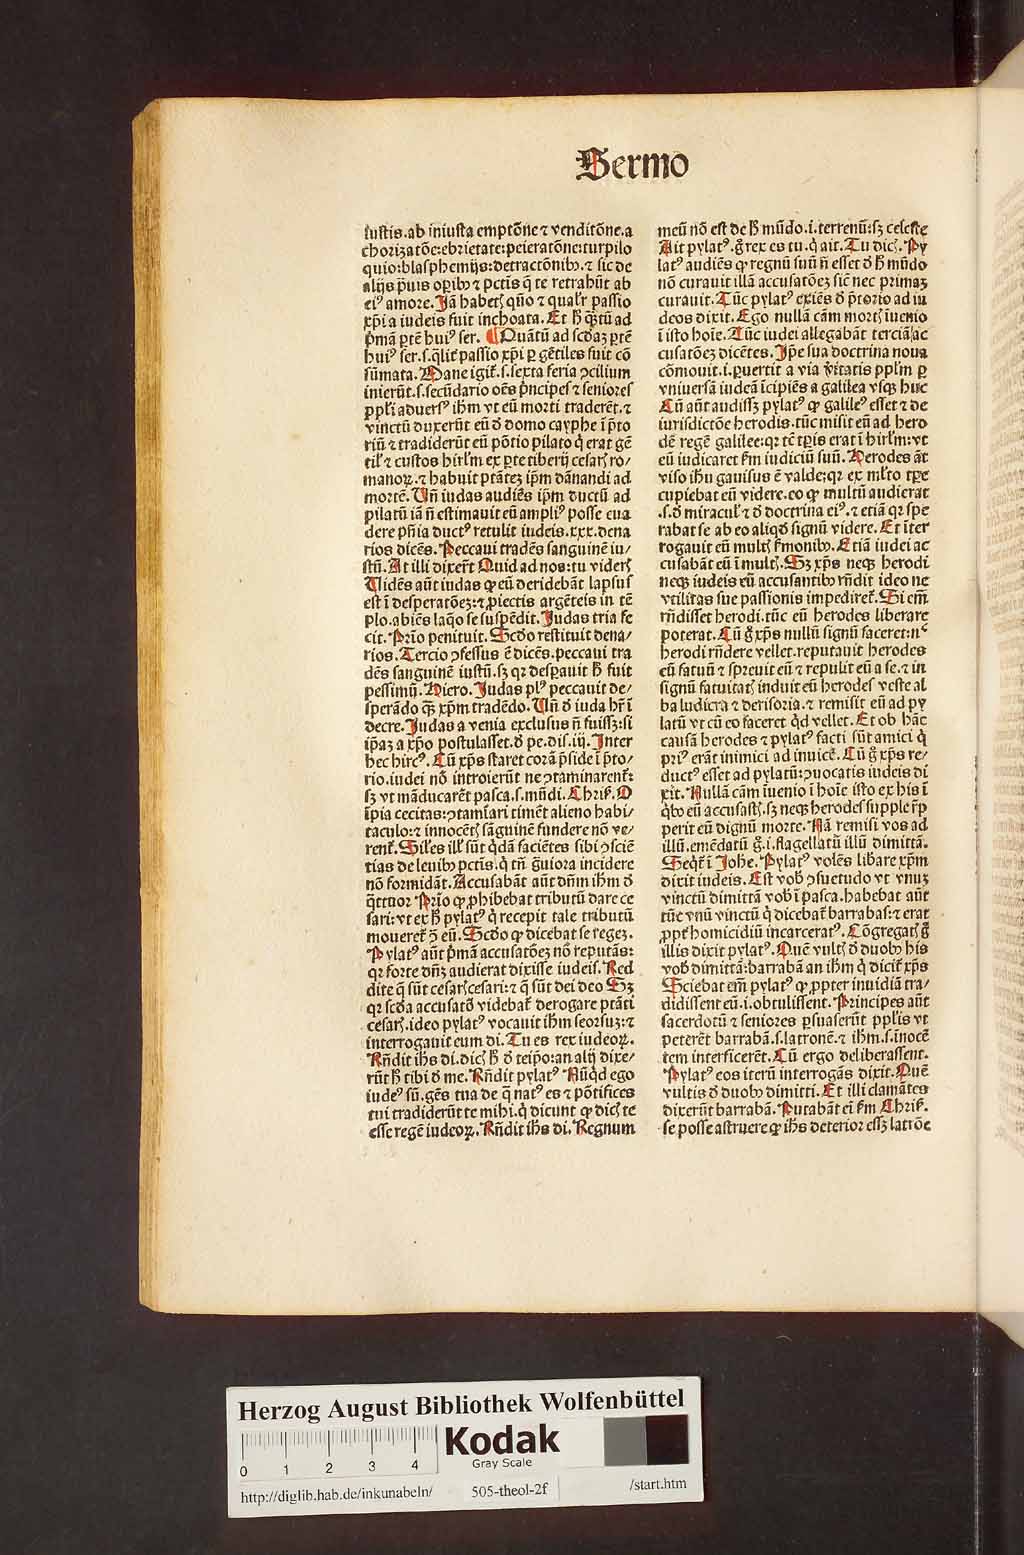 Sermo
iustis.ab iniusta emptōne ⁊ venditōne.a
chorizatōe:ebrietate:peieratōne:turpilo
quio:blasphemijs:detractōnibꝰ.⁊ sic de
alijs ꝑuis oꝑibꝰ ⁊ pctis q̄ te retrahūt ab
eiꝰ amore. Jā habetꝭ qn̄o ⁊ qualr̄ passio
xp̄i a iudeis fuit inchoata. Et h̄ qꝫtū ad
pmā ꝑtē huiꝰ ser. ¶ Quātū ad scd̄aꝫ ꝑtē
huiꝰ ser.s.qlit̄ passio xp̄i ꝑ gētiles fuit cō
sūmata. Mane igit̄.s.sexta feria ↄcilium
inierūt.s.secūdario oēs pncipes ⁊ seniores
ppl̄i aduersꝰ ihm̄ vt eū morti traderēt.⁊
vinctū duxerūt eū d̄ domo cayphe ī pto
riū ⁊ tradiderūt eū pōtio pilato q̇ erat gē
til̄ ⁊ custos hirl̄m ex ꝑte tiberij cesarꝭ ro/
manoꝝ.⁊ habuit ptāteꝫ ip̄m dānandi ad
mortē. Un̄ iudas audiēs ip̄m ductū ad
pilatū iā n̄ estimauit eū ampliꝰ posse eua
dere pn̄ia ductꝰ retulit iudeis.xxx.dena
rios dicēs. Peccaui tradēs sanguinē iu/
stū. At illi dixer̄t Quid ad nos:tu viderꝭ
Uidēs aūt iudas ꝙ eū deridebāt lapsus
est ī desperatōeꝫ:⁊ ꝓiectis argēteis in tē
plo.abiēs laq̊o se suspēdit. Judas tria fe
cit. Prīo penituit. Scd̄o restituit dena/
rios. Tercio ↄfessus ē dicēs.peccaui tra
dēs sanguinē iustū.sꝫ qꝛ despauit h̄ fuit
pessimū. Hiero. Judas plꝰ peccauit de/
sperādo qꝫ xp̄m tradēdo. Un̄ d̄ iuda hr̄ ī
decre. Judas a venia exclusus n̄ fuissꝫ:si
ip̄aꝫ a xp̄o postulasset.d̄ pe.dis.iij. Inter
hec hircꝰ. Cū xp̄s staret corā pside ī pto/
rio.iudei nō introierūt ne ↄtaminarent̄:
sꝫ vt māducarēt pasca.s.mūdi. Chris̄. O
īpia cecitas:ↄtamīari timēt alieno habi/
taculo:⁊ innocētꝭ sāguinē fundere nō ve/
rent̄. Sil̄es ill̄ sūt q̇dā faciētes sibi ↄsciē
tias de leuibꝰ pctis.q̇ tn̄ g̊uiora incidere
nō formidāt. Accusabāt aūt dn̄m ihm̄ d̄
q̊ttuor Prīo ꝙ ꝓhibebat tributū dare ce
sari:vt ex h̄ pylatꝰ q̇ recepit tale tributū
moueret̄ ↄ̄ eū. Scd̄o ꝙ dicebat se regeꝫ.
Pylatꝰ aūt pmā accusatōeꝫ nō reputās:
qꝛ forte dn̄ꝫ audierat dixisse iudeis. Red
dite q̄ sūt cesarꝭ cesari:⁊ q̄ sūt dei deo Sꝫ
qꝛ scd̄a accusatō videbat̄ derogare ptāti
cesarꝭ.ideo pylatꝰ vocauit ihm̄ seorsuꝫ:⁊
interrogauit eum di. Tu es rex iudeoꝝ.
Rn̄dit ihs̄ di. dicꝭ h̄ d̄ teipo:an alij dixe/
rūt h̄ tibi d̄ me. Rn̄dit pylatꝰ Nūq̇d ego
iudeꝰ sū.gēs tua de q̄ natꝰ es ⁊ pōtifices
tui tradiderūt te mihi.q̇ dicunt ꝙ dicꝭ te
esse regē iudeoꝝ. Rn̄dit ihs̄ di. Regnum
meū nō est de h̄ mūdo.i.terrenū:sꝫ celeste
Ait pylatꝰ.g̊ rex es tu.q̇ ait. Tu dicꝭ. Py
latꝰ audiēs ꝙ regnū suū n̄ esset d̄ h̄ mūdo
nō curauit illā accusatōeꝫ sic̄ nec primaꝫ
curauit. Tūc pylatꝰ exiēs d̄ ptorio ad iu
deos dixit. Ego nullā cām mortꝭ īuenio
ī isto hoīe. Tūc iudei allegabāt terciā ac
cusatōeꝫ dicētes. Ip̄e sua doctrina noua
cōmouit.i.ꝑuertit a via v̄itatis pplm̄ ꝑ
vniuersā iudeā īcipiēs a galilea vsqꝫ huc
Cū aūt audissꝫ pylatꝰ ꝙ galileꝰ esset ⁊ de
iurisdictōe herodis.tūc misit eū ad hero
dē regē galilee:qꝛ tē tꝑis erat ī hirl̄m:vt
eū iudicaret ẜm iudiciū suū. Herodes āt
viso ihū gauisus ē valde:qꝛ ex ml̄to tꝑe
cupiebat eū videre.eo ꝙ multū audierat
.s.d̄ miracul̄ ⁊ d̄ doctrina eiꝰ.⁊ etiā qꝛ spe
rabat se ab eo aliqd̄ signū videre. Et īter
rogauit eū multꝭ ẜmonibꝰ. Etiā iudei ac
cusabāt eū ī multꝭ. Sꝫ xp̄s neqꝫ herodi
neqꝫ iudeis eū accusantibꝰ rn̄dit ideo ne
vtilitas sue passionis impediret̄. Si em̄
rn̄disset herodi.tūc eū herodes liberare
poterat. Cū g̊ xp̄s nullū signū faceret:nᶜ
herodi rn̄dere vellet.reputauit herodes
eū fatuū ⁊ spreuit eū ⁊ repulit eū a se.⁊ in
signū fatuitatꝭ induit eū herodes veste al
ba ludicra ⁊ derisoria.⁊ remisit eū ad py
latū vt cū eo faceret qd̄ vellet. Et ob hāc
causā herodes ⁊ pylatꝰ facti sūt amici q̇
priꝰ erāt inimici ad inuicē. Cū g̊ xp̄s re/
ductꝰ esset ad pylatū:ↄuocatis iudeis di
xit. Nullā cām īuenio ī hoīe isto ex his ī
q̇bꝰ eū accusastꝭ.sꝫ neqꝫ herodes supple r̄p
perit eū dignū morte. Nā remisi vos ad
illū.emēdatū g̊.i.flagellatū illū dimittā.
Seqt̄ ī Johe. Pylatꝰ volēs libare xp̄m
dixit iudeis. Est vob̄ ↄsuetudo vt vnuꝫ
vinctū dimittā vob̄ ī pasca.habebat aūt
tūc vnū vinctū q̇ dicebat̄ barrabas:⁊ erat
ꝓpt̄ homicidiū incarceratꝰ. Cōgregatꝭ g̊
illis dixit pylatꝰ. Quē vultꝭ d̄ duobꝰ his
vob̄ dimittā:barrabā an ihm̄ q̇ dicit̄ xp̄s
Sciebat em̄ pylatꝰ ꝙ ꝓpter inuidiā tra/
didissent eū.i.obtulissent. Principes aūt
sacerdotū ⁊ seniores ꝑsuaserūt ppl̄is vt
peterēt barrabā.s.latronē.⁊ ihm̄.s.īnocē
tem interficerēt. Cū ergo deliberassent.
Pylatꝰ eos iterū interrogās dixit. Quē
vultis d̄ duobꝰ dimitti. Et illi clamātes
dixerūt barrabā. Putabāt ei ẜm Chris̄.
se posse astruere ꝙ ihs̄ deterior essꝫ latrōe
Herzog August Bibliothek Wolfenbüttel
0 1 2 3 4
Kodak
Gray Scale
http://diglib.hab.de/inkunabeln/ 505-theol-2f /start.htm